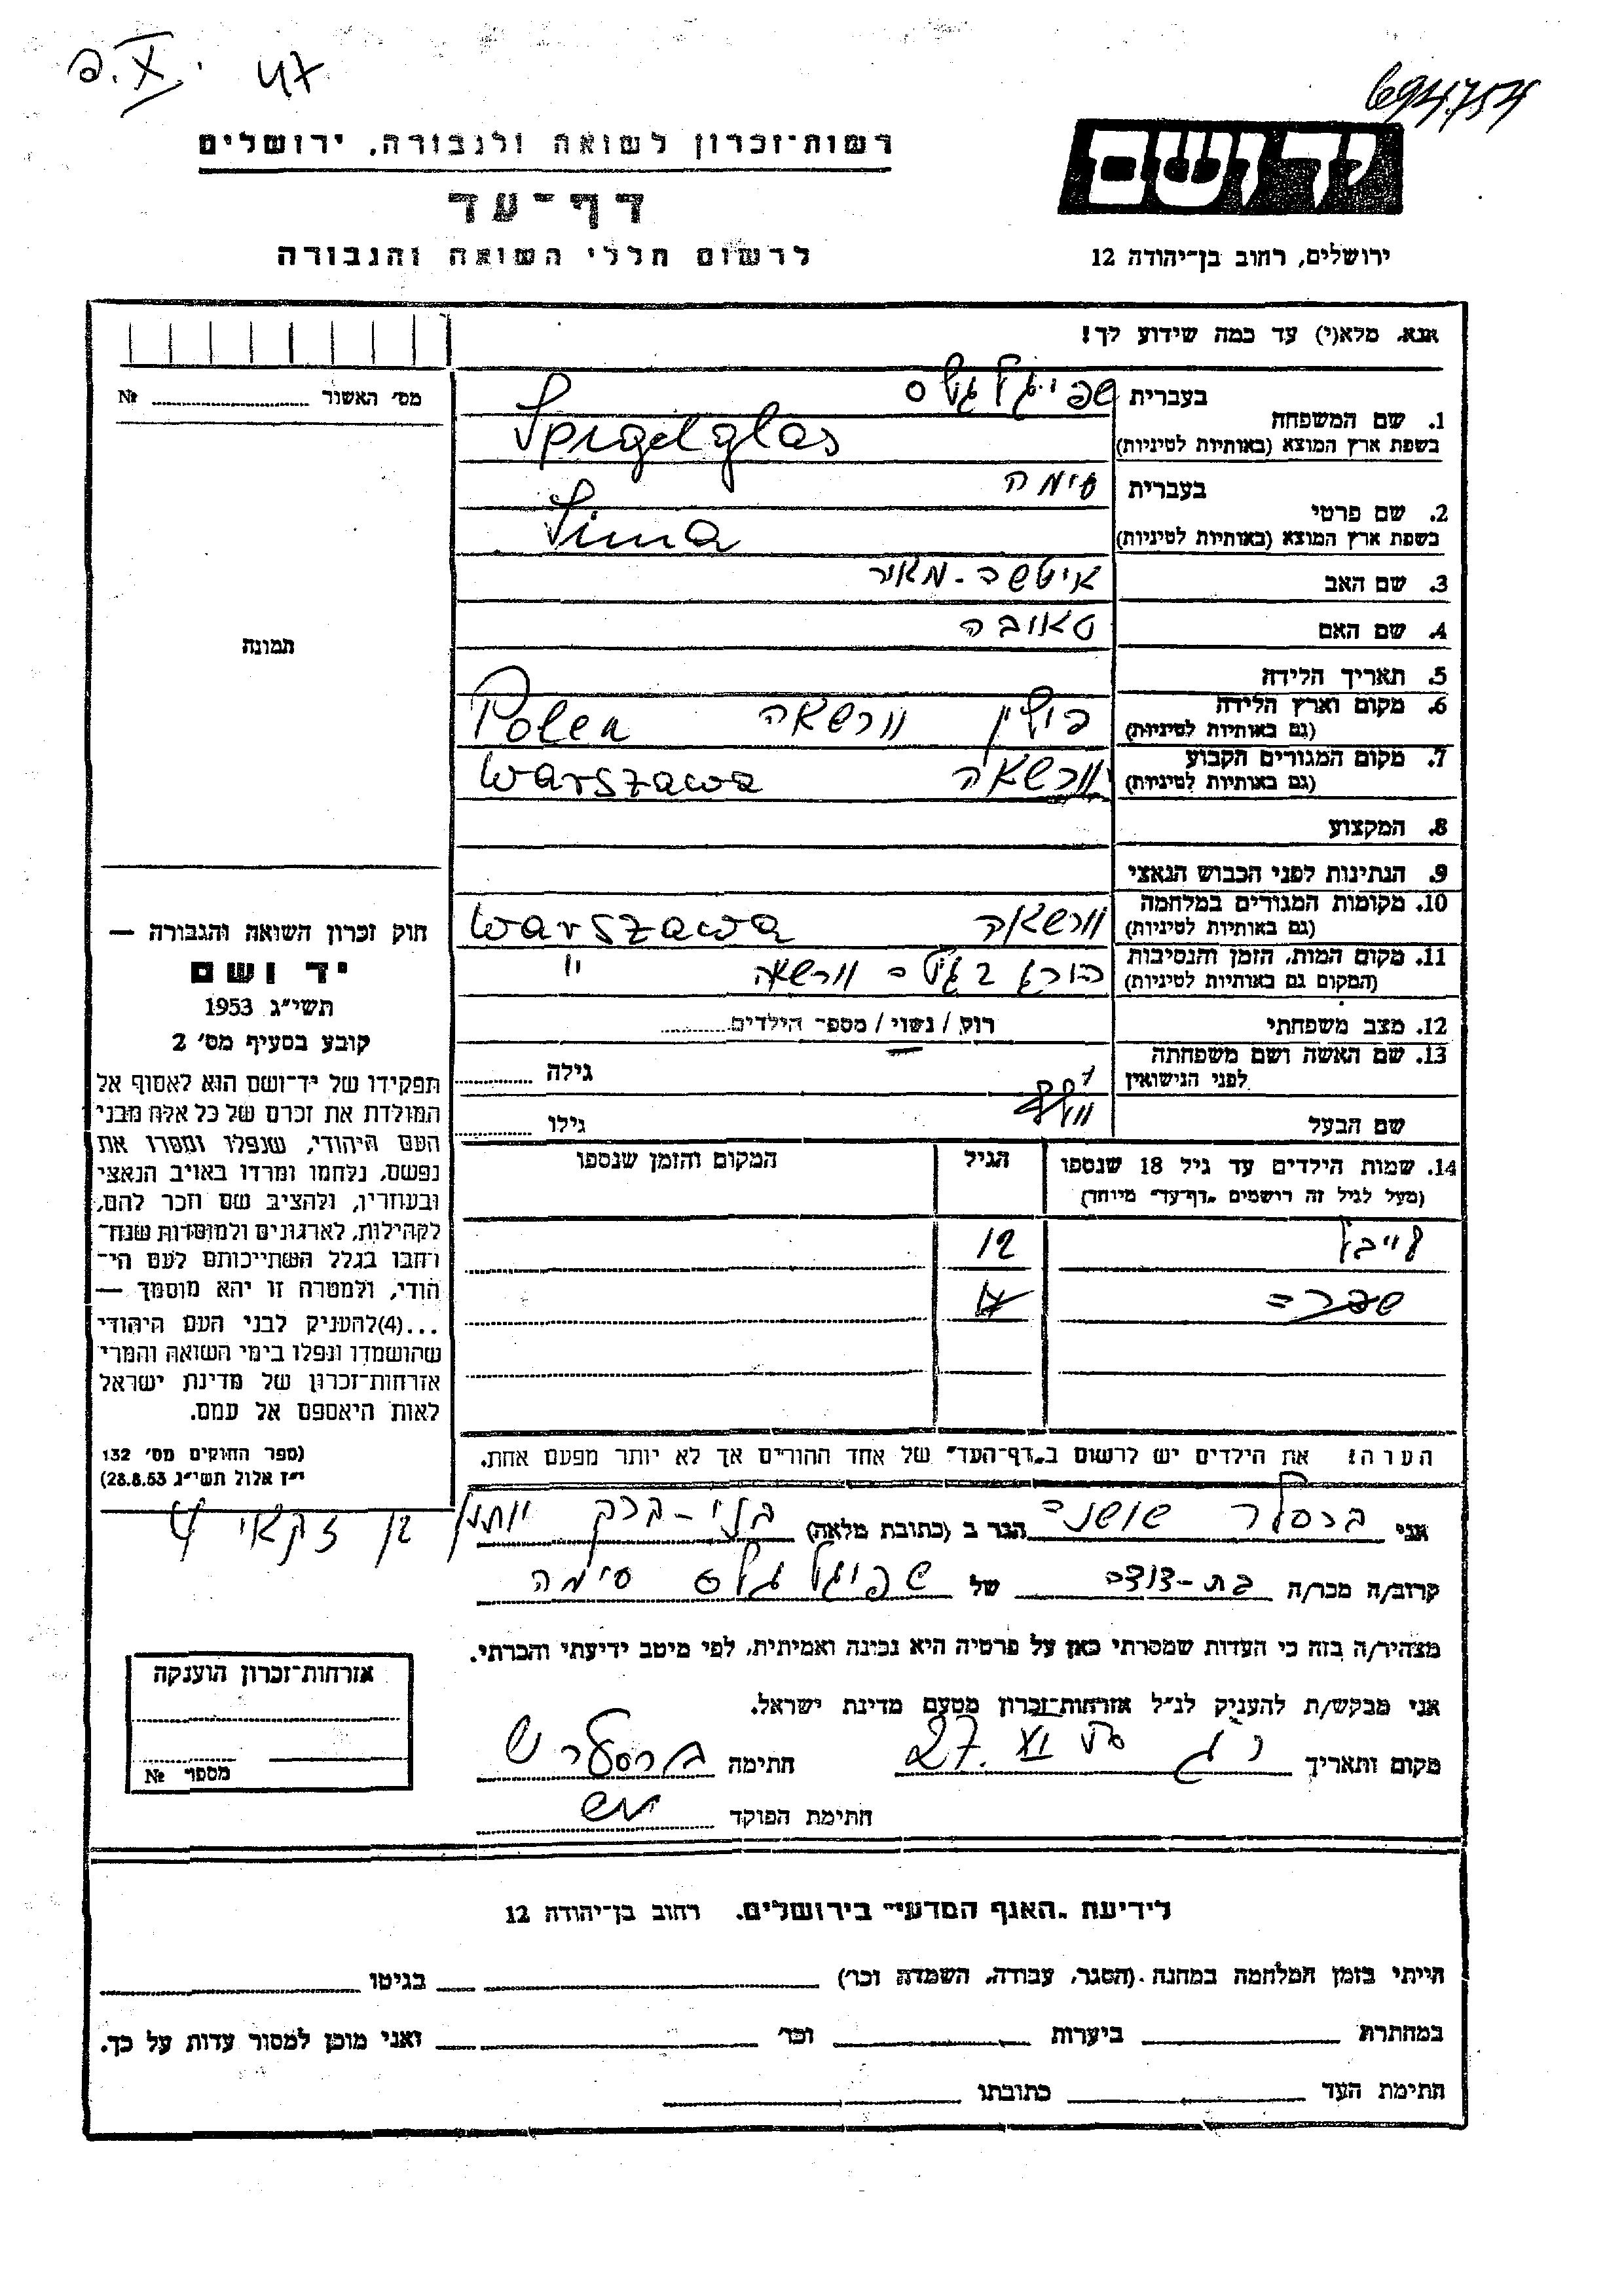 47
694754
רשות-זכרון לשואה ולגבורה, ירושלים
דף-עד
לרשום חללי השואה והגבורה
יד ושם
ירושלים, רחוב בן-יהודה 12
אנא, מלא(י) עד כמה שידוע לך!
מס' האשור № 
1. שם המשפחה
בעברית שפיגלגלס
בשפת ארץ המוצא (באותיות לטיניות) Spigelglas
2. שם פרטי
בעברית סימה
בשפת ארץ המוצא (באותיות לטיניות) Sima
3. שם האב איטשה-מאיר
4. שם האם טאובה
תמונה
5. תאריך הלידה
6. מקום וארץ הלידה (גם באותיות לטיניות) פולין וורשאה Polen
7. מקום המגורים הקבוע (גם באותיות לטיניות) וורשאה Warszawa
8. המקצוע
9. הנתינות לפני הכבוש הנאצי
10. מקומות המגורים במלחמה (גם באותיות לטיניות) וורשאה Warszawa
11. מקום המות, הזמן והנסיבות (המקום גם באותיות לטיניות) וורשאה "
12. מצב משפחתי רוק / נשוי / מספר הילדים
13. שם האשה ושם משפחתה לפני הנישואין גילה
שם הבעל גילו
14. שמות הילדים עד גיל 18 שנספו הגיל המקום והזמן שנספו
(מעל לגיל זה רושמים „דף-עד" מיוחד)
לייבל 12
הערה: את הילדים יש לרשום ב„דף-העד" של אחד ההורים אך לא יותר מפעם אחת.
חוק זכרון השואה והגבורה —
יד ושם
תשי"ג 1953
קובע בסעיף מס' 2
תפקידו של יד-ושם הוא לאסוף אל
המולדת את זכרם של כל אלה מבני
העם היהודי, שנפלו ומסרו את
נפשם, נלחמו ומרדו באויב הנאצי
ובעוזריו, ולהציב שם וזכר להם,
לקהילות, לארגונים ולמוסדות שנח-
רבו בגלל השתייכותם לעם הי-
הודי, ולמטרה זו יהא מוסמך —
...(4)להעניק לבני העם היהודי
שהושמדו ונפלו בימי השואה והמרי
אזרחות-זכרון של מדינת ישראל
לאות היאספם אל עמם.
(ספר החוקים מס' 132
י"ז אלול תשי"ג 28.8.53)
אני ברסלר שושנה הגר ב (כתובת מלאה) בני-ברק יוחנן בן זקאי 4
קרוב/ה מכר/ה בת-דודה של שפיגלגלס סימה
מצהיר/ה בזה כי העדות שמסרתי כאן על פרטיה היא נכונה ואמיתית, לפי מיטב ידיעתי והכרתי.
אני מבקש/ת להעניק לנ"ל אזרחות-זכרון מטעם מדינת ישראל.
מקום ותאריך ר"ג 27. VI חתימה ברסלר ש
חתימת הפוקד
אזרחות-זכרון הוענקה
מספר №
לידיעת „האגף המדעי" בירושלים, רחוב בן-יהודה 12
הייתי בזמן המלחמה במחנה (הסגר, עבודה, השמדה וכו') בגיטו
במחתרת ביערות וכו' ואני מוכן למסור עדות על כך.
חתימת העד כתובתו